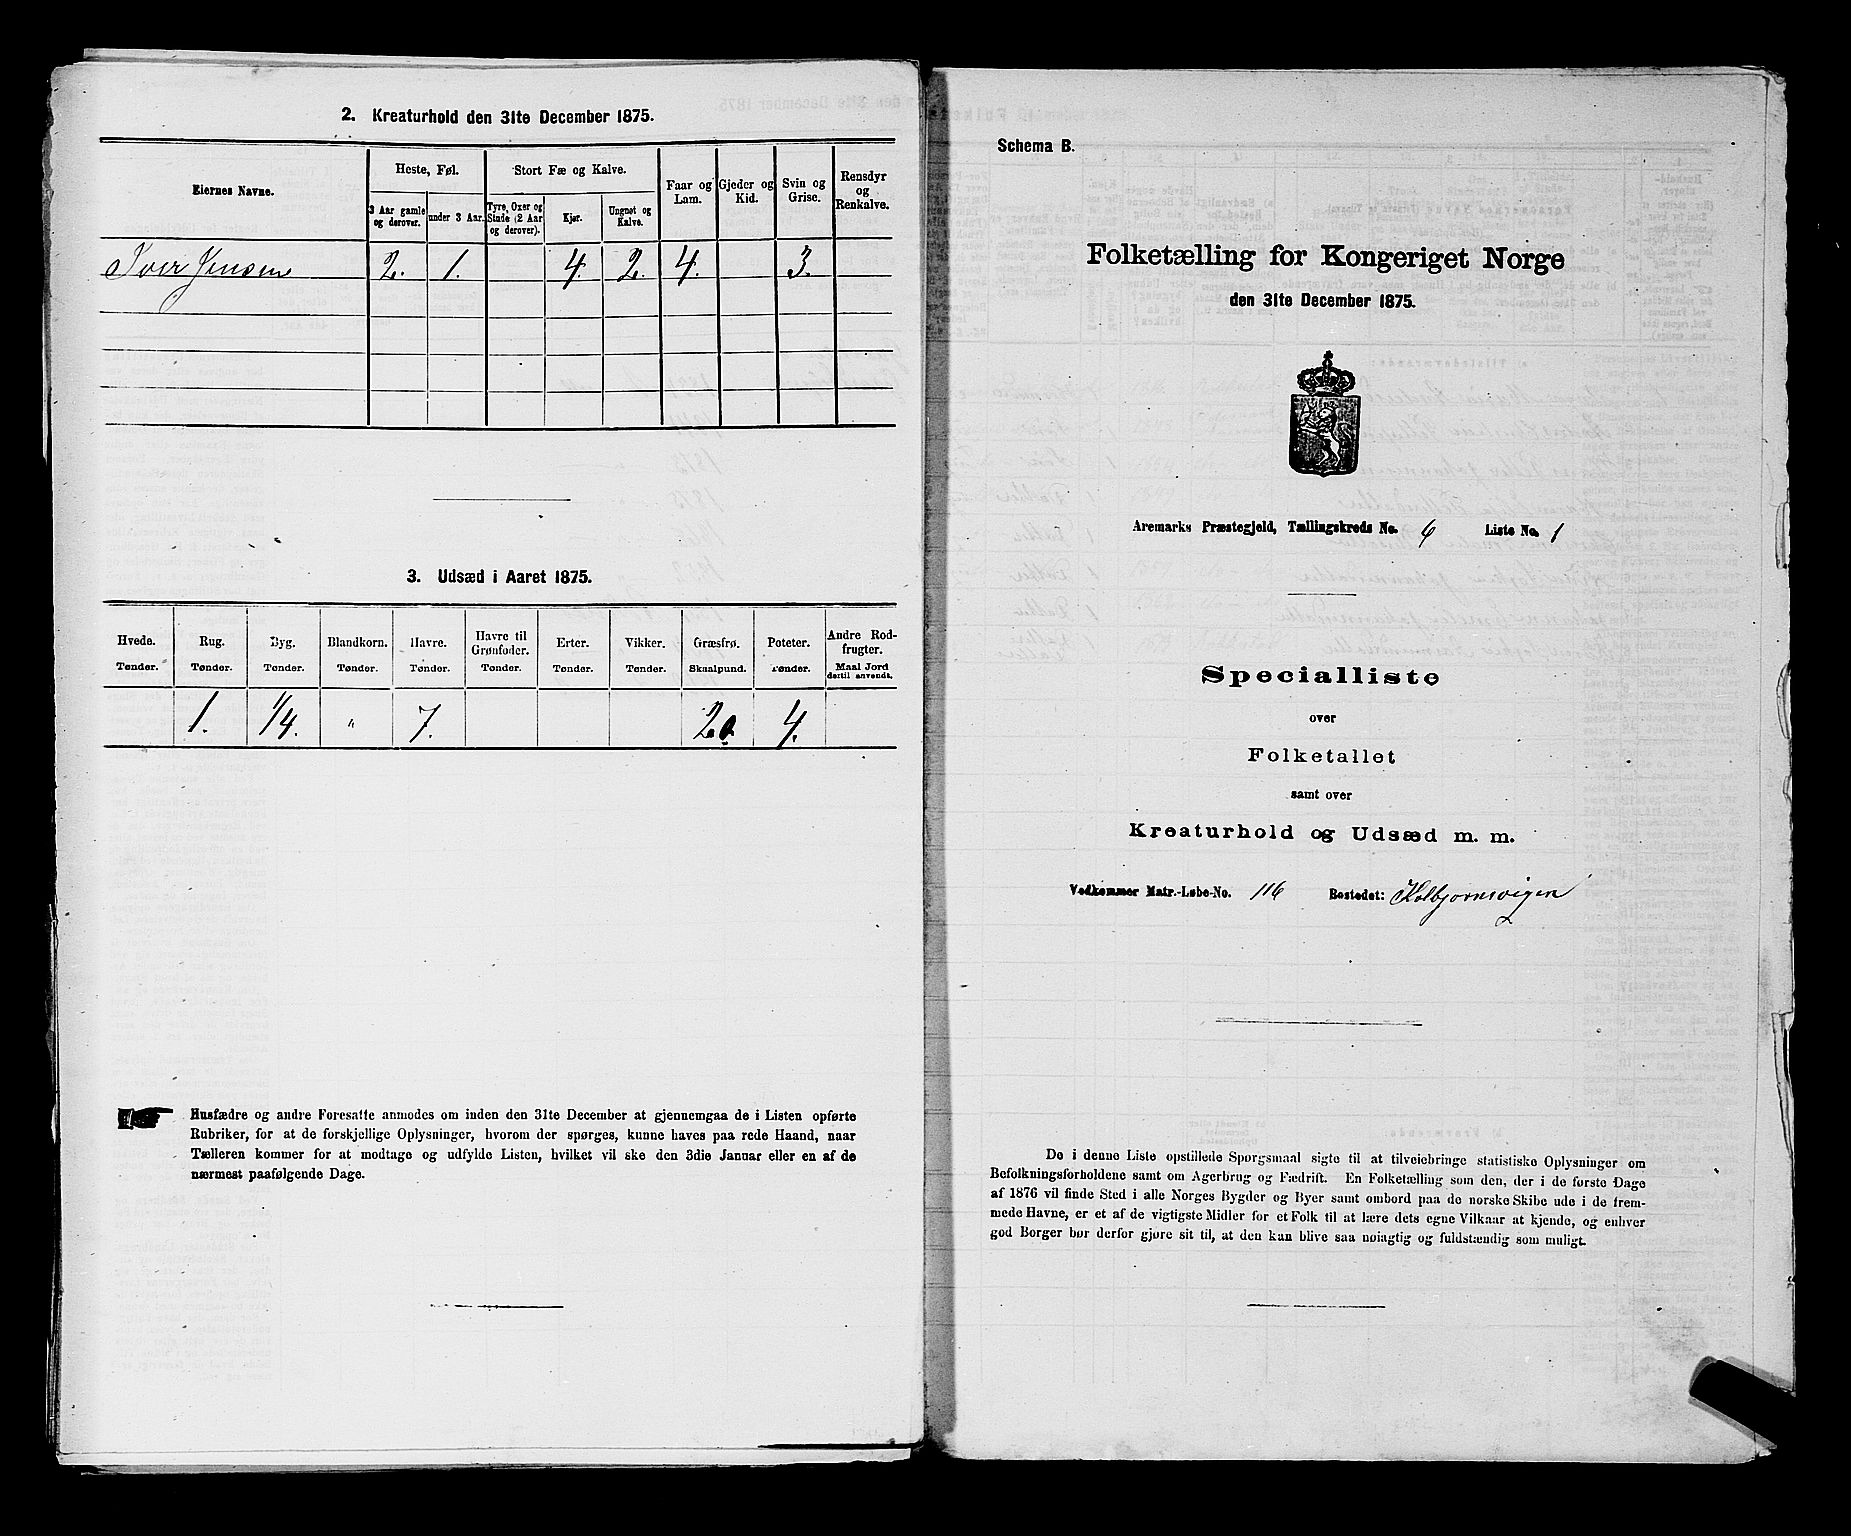 2. Kreaturhold den 31te December 1875.
Eiernes Navne.
Heste, Føl.
Stort Fæ og Kalve.
3 Aar gamle og derover.
under 3 Aar.
Tyre, Oxer og Stude (2 Aar og derover).
Kjør.
Ungnøt og Kalve.
Faar og Lam.
Gjeder og Kid.
Svin og Grise.
Rensdyr og Renkalve.
Iver Jensen 2. 1. 4. 2. 4. 3.
3. Udsæd i Aaret 1875.
Hvede. Rug. Byg. Blandkorn. Havre. Havre til Grønfoder. Erter. Vikker. Græsfrø. Poteter. Andre Rodfrugter.
Tønder. Tønder. Tønder. Tønder. Tønder. Tønder. Tønder. Tønder. Skaalpund. Tønder. Maal Jord dertil anvendt.
1. 1/4. " 7. 20. 4.
Husfædre og andre Foresatte anmodes om inden den 31te December at gjennemgaa de i Listen opførte
Rubriker, for at de forskjellige Oplysninger, hvorom der spørges, kunne haves paa rede Haand, naar
Tælleren kommer for at modtage og udfylde Listen, hvilket vil ske den 3die Januar eller en af de
nærmest paafølgende Dage.
Schema B.
Folketælling for Kongeriget Norge
den 31te December 1875.
Aremarks Præstegjeld, Tællingskreds No. 6 Liste No. 1
Specialliste
over
Folketallet
samt over
Kreaturhold og Udsæd m. m.
Vedkommer Matr.-Løbe-No. 116 Bostedet: Kolbjørnsvigen
De i denne Liste opstillede Spørgsmaal sigte til at tilveiebringe statistiske Oplysninger om
Befolkningsforholdene samt om Agerbrug og Fædrift. En Folketælling som den, der i de første Dage
af 1876 vil finde Sted i alle Norges Bygder og Byer samt ombord paa de norske Skibe ude i de frem-
mede Havne, er et af de vigtigste Midler for et Folk til at lære dets egne Vilkaar at kjende, og enhver
god Borger bør derfor gjøre sit til, at den kan blive saa nøiagtig og fuldstændig som muligt.